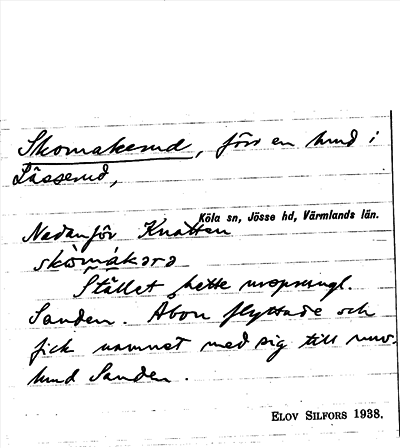 Skomakerud, förr en hmd i
Lässerud,
Köla sn, Jösse hd, Värmlands län.
Nedanför Knatten
skòmákarə
Stället hette ursprungl.
Sanden. Åbon flyttade och
fick namnet med sig till nuv.
hmd Sanden.
ELOV SILFORS 1938.